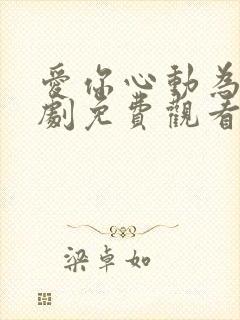 愛你心動為
劇免費觀看
梁卓如